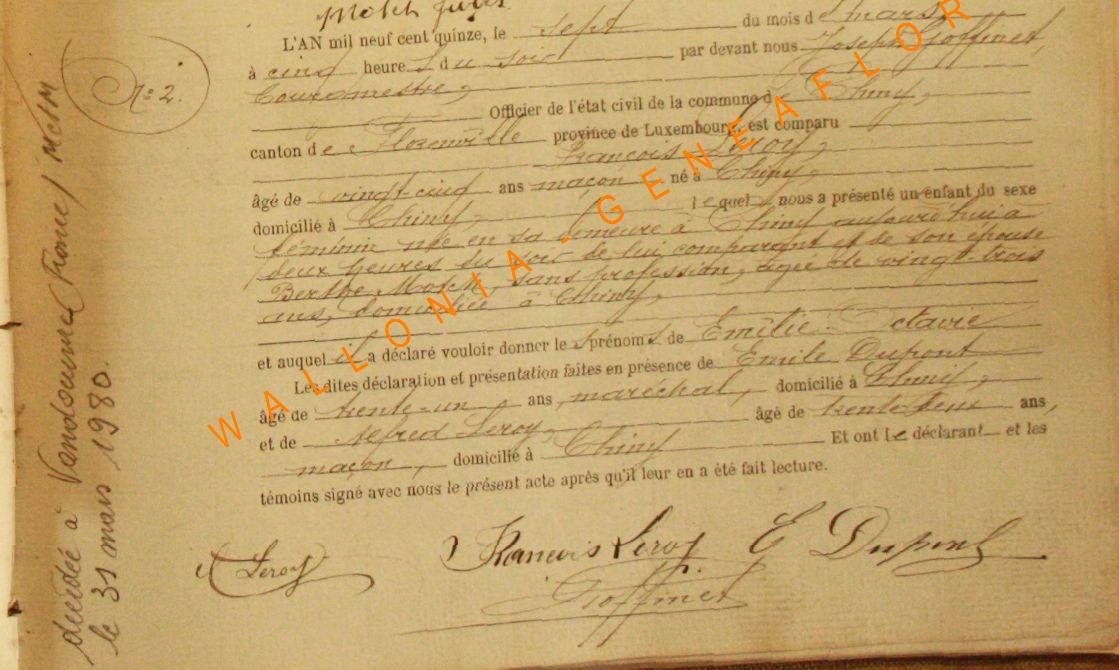 L'AN mil neuf cent quinze, le sept du mois de mars,
à cinq heures du soir par devant nous Joseph Goffinet,
Bourgmestre,
Officier de l'état civil de la commune de Chiny,
canton de Florenville province de Luxembourg, est comparu
François Leroy,
âgé de vingt-cinq ans maçon né à Chiny,
domicilié à Chiny, lequel nous a présenté un enfant du sexe
féminin née en sa demeure à Chiny aujourd'hui à
deux heures du soir de lui comparant et de son épouse
Berthe sans profession, âgée de vingt-trois
ans, domiciliée à Chiny,
et auquel il a déclaré vouloir donner les prénoms de Emilie Octavie
Les dites déclaration et présentation faites en présence de Emile Dupont
âgé de trente-un ans, maréchal, domicilié à Chiny,
et de Alfred Leroy, âgé de trente deux ans,
maçon, domicilié à Chiny Et ont le déclarant et les
témoins signé avec nous le présent acte après qu'il leur en a été fait lecture.
A Leroy François Leroy E Dupont
Goffinet
No: 2.
décédée à
le 31 mars 1980.
WALLONIA-GENEAFLOR